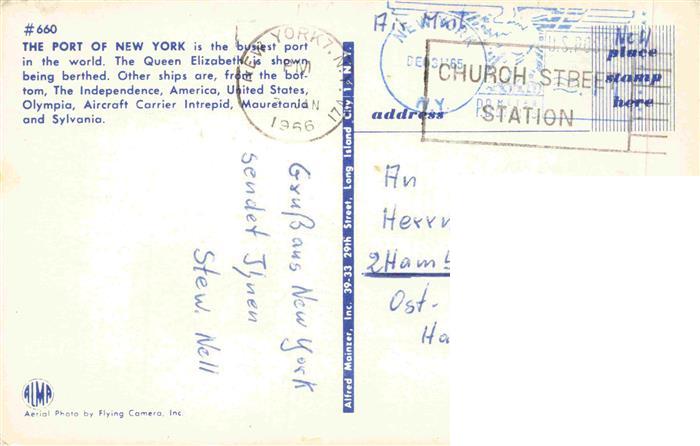 #660
THE PORT OF NEW YORK is the busiest port
in the world. The Queen Elizabeth is shown
being berthed. Other ships are, from the bot-
tom, The Independence, America, United States,
Olympia, Aircraft Carrier Intrepid, Mauretania
and Sylvania.
NEW YORK 1, N.Y.
JAN
1966
Air Mail
NEW
N.Y.
CHURCH STREET
STATION
place
stamp
here
address
Gruß aus New York
sendet Ihnen
Stew. Nell
Alfred Mainzer, Inc. 39-33 29th Street, Long Island City 1, N.Y.
An
Herrn
2Hamb
Ost-
Ha
ALMA
Aerial Photo by Flying Camera, Inc.